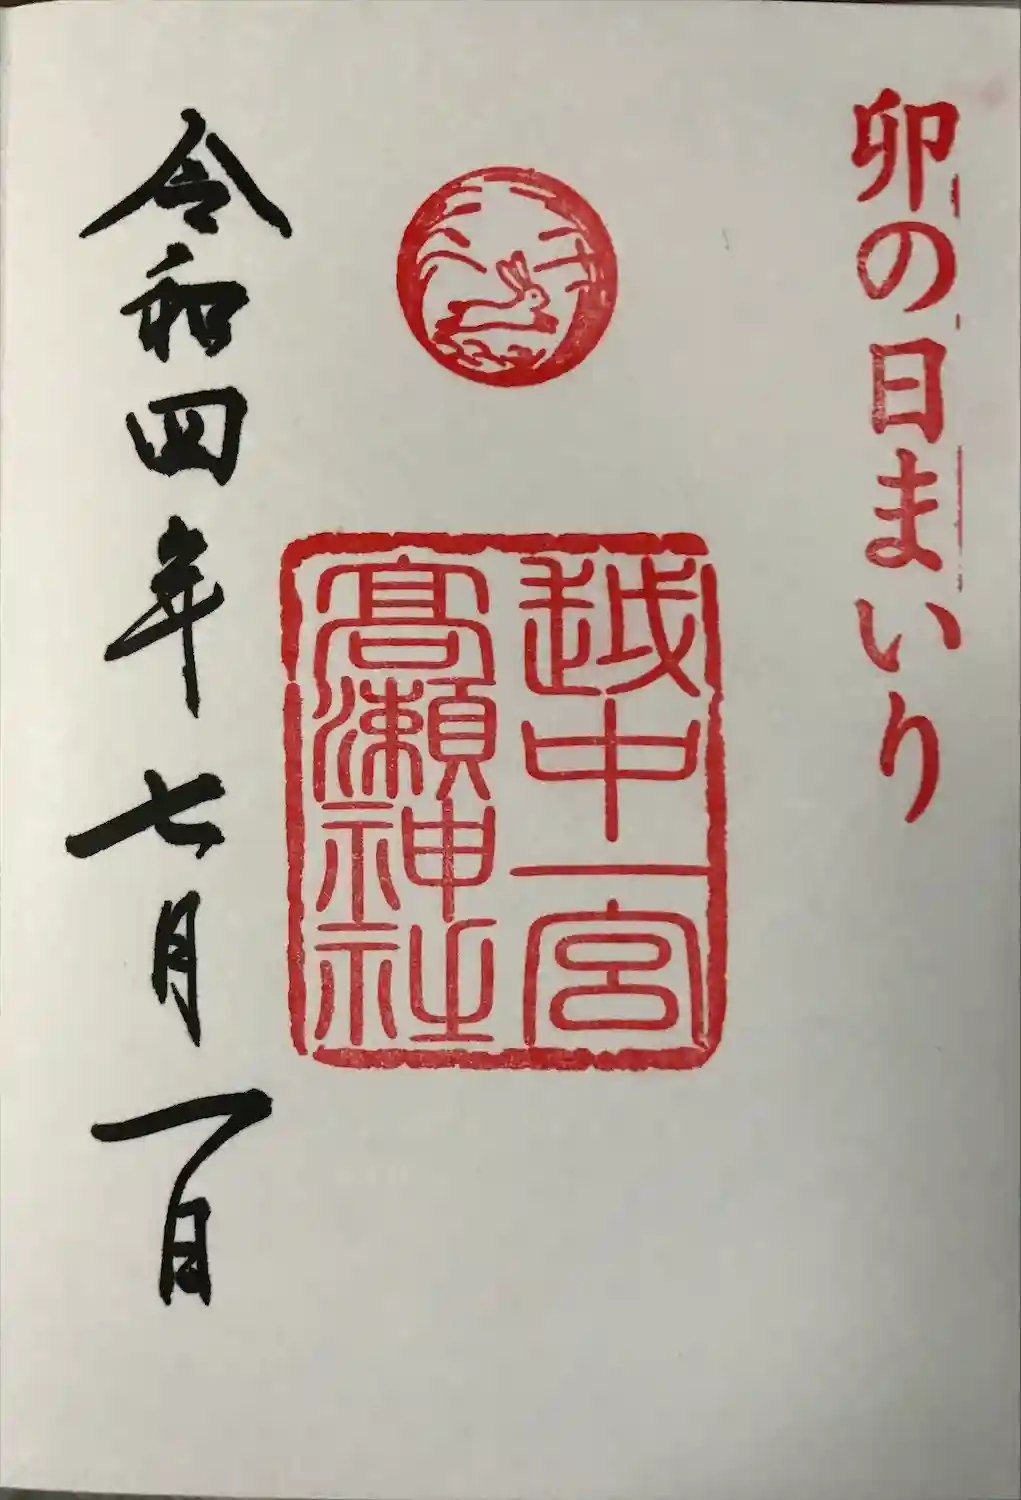 卯の日まいり
越中一宮
高瀬神社
令和四年七月一日